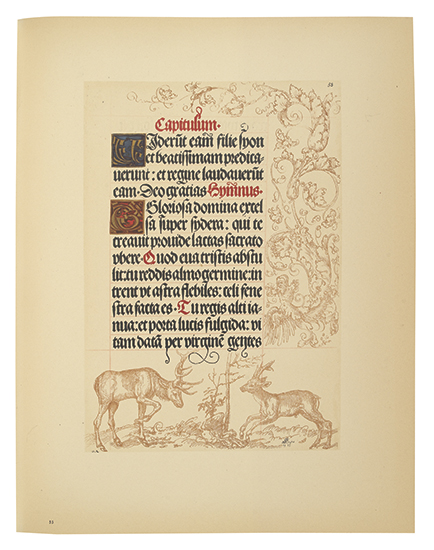 58
Capitulum.
Uiderūt eam filie syon
et beatissimam predica,
uerunt: et regine laudauerūt
eam. Deo gratias. Hymnus.
O Gloriosa domina excel
sa super sydera: qui te
creauit prouide lactas sacrato
vbere. Quod eua tristis abstu
lit: tu reddis almo germine: in
trent vt astra flebiles: celi fene
stra facta es. Tu regis alti ia,
nua: et porta lucis fulgida: vi
tam datā per virginē gentes